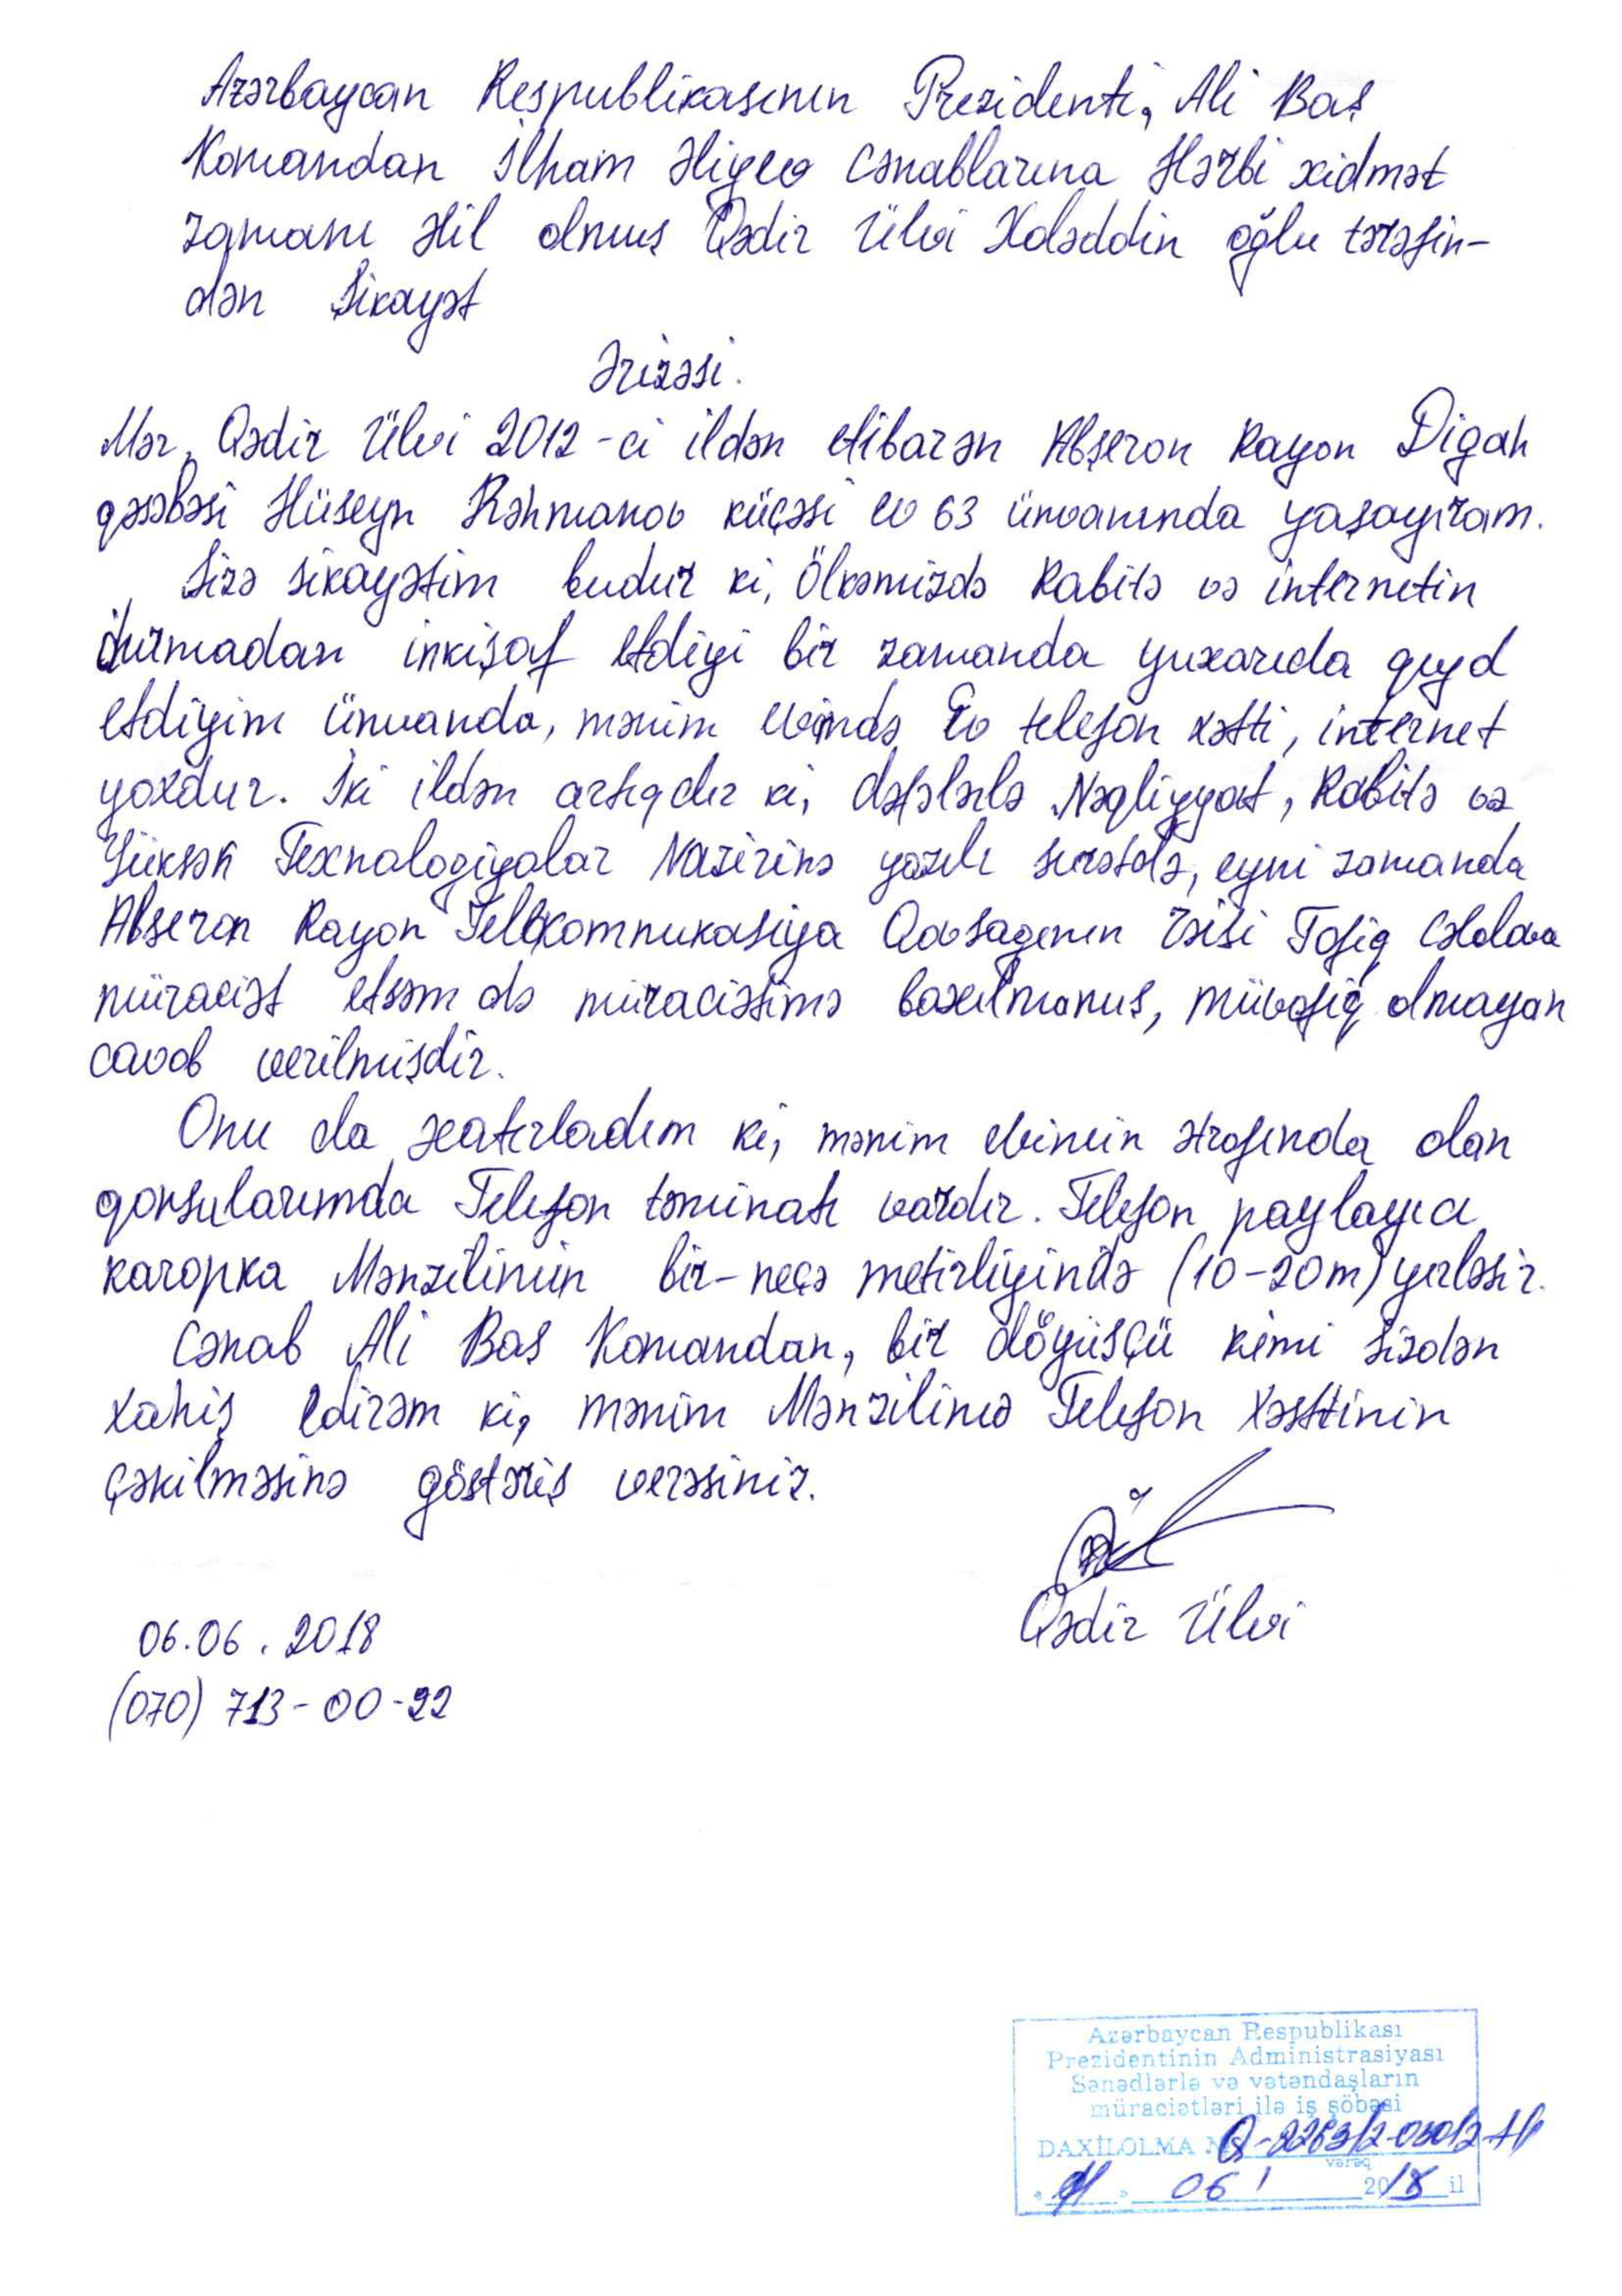 Azərbaycan Respublikasının Prezidenti, Ali Baş
Komandan İlham Əliyev Cənablarına Hərbi xidmət
zamanı Əlil olmuş Qədir Ülvi Xələddin oğlu tərəfin-
dən Şikayət
Ərizəsi.
Mən, Qədir Ülvi 2012-ci ildən etibarən Abşeron Rayon Digah
qəsəbəsi Hüseyn Rəhmanov küçəsi ev 63 ünvanında yaşayıram.
Sizə şikayətim budur ki, Ölkəmizdə Rabitə və internetin
durmadan inkişaf etdiyi bir zamanda yuxarıda qeyd
etdiyim ünvanda, mənim evimdə Ev telefon xətti, internet
yoxdur. İki ildən artıqdır ki, dəfələrlə Nəqliyyat, Rabitə və
Yüksək Texnologiyalar Nazirinə yazılı surətdə, eyni zamanda
Abşeron Rayon Telekomnukasiya Qovşağının rəisi Tofiq Cəlalova
müraciət etsəm də müraciətimə baxılmamış, müvafiq olmayan
cavab verilmişdir.
Onu da xatırladım ki, mənim evimin ətrafında olan
qonşularımda Telefon təminatı vardır. Telefon paylayıcı
karopka Mənzilimin bir-neçə metirliyində (10-20m) yerləşir.
Cənab Ali Baş Komandan, bir döyüşçü kimi Sizdən
xahiş edirəm ki, mənim Mənzilimə Telefon Xəttinin
çəkilməsinə göstəriş verəsiniz.
Qədir Ülvi
06.06.2018
(070) 713-00-22
Azərbaycan Respublikası
Prezidentinin Administrasiyası
Sənədlərlə və vətəndaşların
müraciətləri ilə iş şöbəsi
DAXİLOLMA №
vərəq
06 2018 il